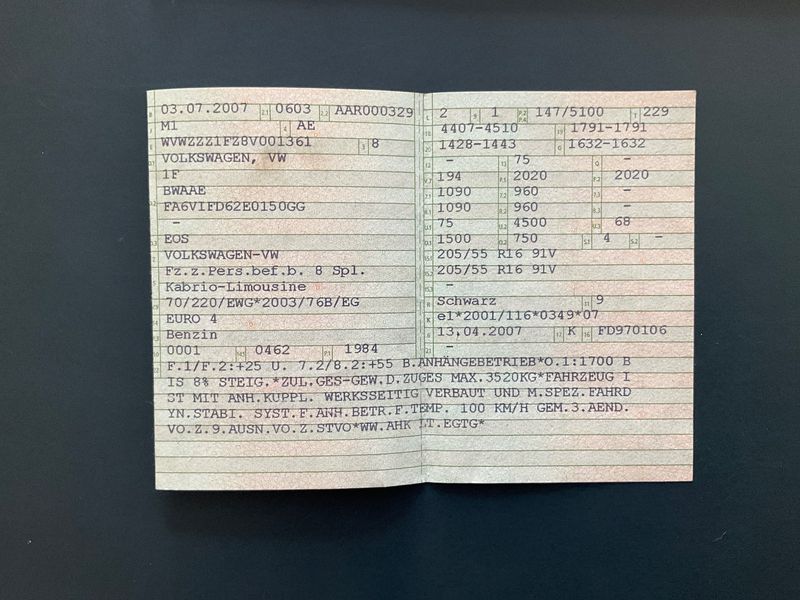 03.07.2007 0603 AAR000329
M1 AE
WVWZZZ1FZ8V001361 8
VOLKSWAGEN, VW
1F
BWAAE
FA6VIFD62E0150GG
-
EOS
VOLKSWAGEN-VW
Fz.z.Pers.bef.b. 8 Spl.
Kabrio-Limousine
70/220/EWG*2003/76B/EG
EURO 4
Benzin
0001 0462 1984
2 1 147/5100 229
4407-4510 1791-1791
1428-1443 1632-1632
- 75 -
194 2020 2020
1090 960 -
1090 960 -
75 4500 68
1500 750 4 -
205/55 R16 91V
205/55 R16 91V
-
Schwarz 9
e1*2001/116*0349*07
13,04.2007 K FD970106
-
F.1/F.2:+25 U. 7.2/8.2:+55 B.ANHÄNGEBETRIEB*O.1:1700 B
IS 8% STEIG.*ZUL.GES-GEW.D.ZUGES MAX.3520KG*FAHRZEUG I
ST MIT ANH.KUPPL. WERKSSEITIG VERBAUT UND M.SPEZ.FAHRD
YN.STABI. SYST.F.ANH.BETR.F.TEMP. 100 KM/H GEM.3.AEND.
VO.Z.9.AUSN.VO.Z.STVO*WW.AHK LT.EGTG*